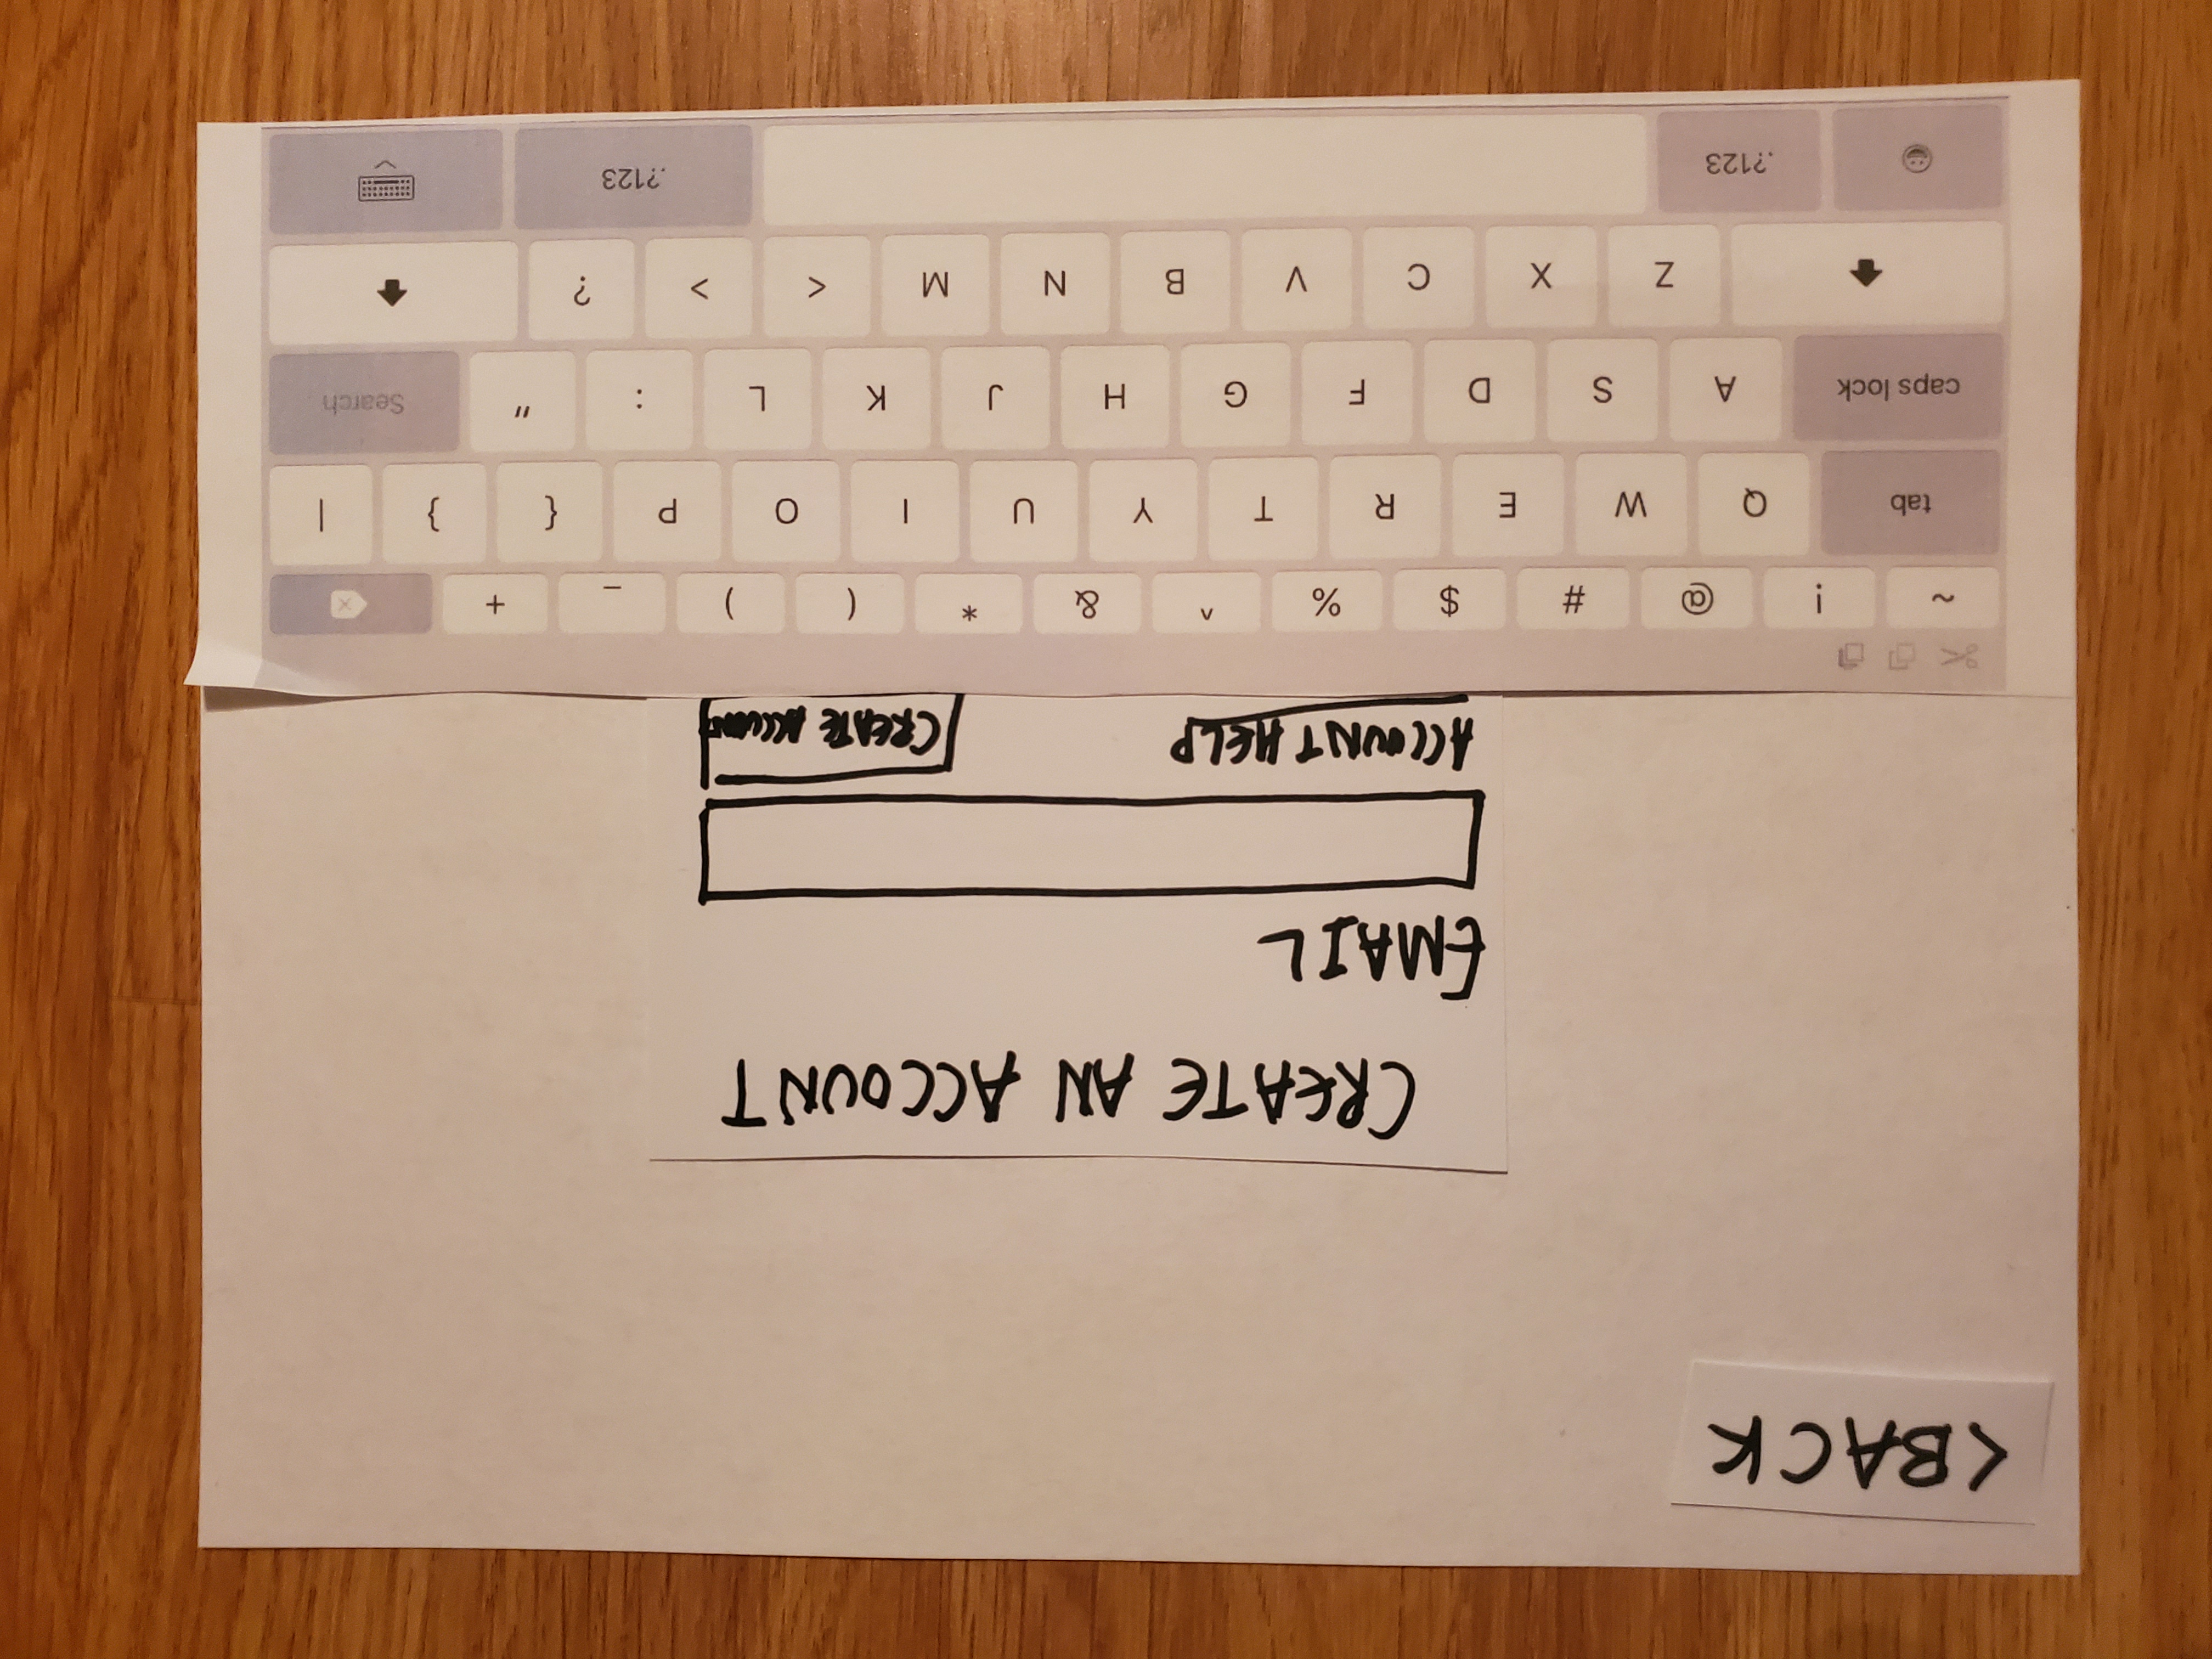 <BACK
CREATE AN ACCOUNT
EMAIL
ACCOUNT HELP
CREATE ACCOUNT
~ ! @ # $ % ^ & * ( ) _ +
tab Q W E R T Y U I O P { } |
caps lock A S D F G H J K L : " Search
Z X C V B N M < > ?
.?123 .?123